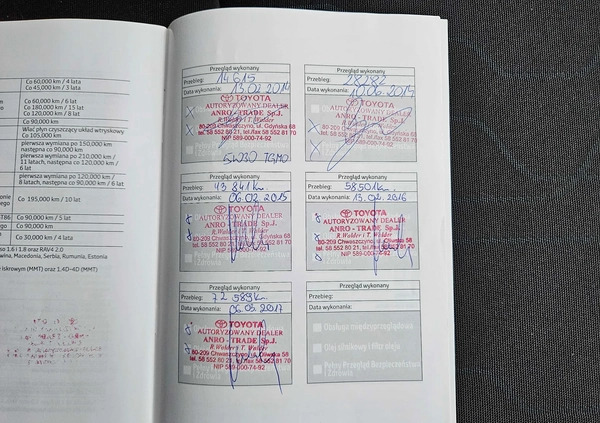 Co 60,000 km / 4 lata
Co 45,000 km / 3 lata
Co 60,000 km / 6 lat
Co 180,000 km / 15 lat
Co 120,000 km / 8 lat
Co 90,000 km
Wlać płyn czyszczący układ wtryskowy
Co 105,000 km
pierwsza wymiana po 150,000 km
następna co 90,000 km
pierwsza wymiana po 210,000 km /
11 latach, następna co 120,000 km /
6 lat
pierwsza wymiana po 120,000 km /
8 latach, następna co 90,000 km / 6 lat
Co 195,000 km / 10 lat
Co 90,000 km / 5 lat
Co 90,000 km
Co 30,000 km / 4 lata
so 1.6 i 1.8 oraz RAV4 2.0
Macedonia, Serbia, Rumunia, Estonia
iskrowym (MMT) oraz 1.4D-4D (MMT)
Przegląd wykonany
Przebieg: 14615
Data wykonania: 13.02.2014
TOYOTA
AUTORYZOWANY DEALER
ANRO - TRADE Sp.J.
80-209 Chwaszczyno, ul. Gdyńska 68
tel. 58 552 80 21, tel./fax 58 552 81 70
NIP 589-000-74-92
5W30
Przegląd wykonany
Przebieg: 28282
Data wykonania: 10.06.2014
TOYOTA
AUTORYZOWANY DEALER
ANRO - TRADE Sp.J.
80-209 Chwaszczyno, ul. Gdyńska 68
tel. 58 552 80 21, tel./fax 58 552 81 70
NIP 589-000-74-92
Przegląd wykonany
Przebieg: 43 841 km
Data wykonania: 06.02.2015
TOYOTA
AUTORYZOWANY DEALER
ANRO - TRADE Sp.J.
R. Walder i T. Walder
80-209 Chwaszczyno, ul. Gdyńska 68
tel. 58 552 80 21, tel./fax 58 552 81 70
NIP 589-000-74-92
Przegląd wykonany
Przebieg: 58501 km
Data wykonania: 13.02.2016
TOYOTA
AUTORYZOWANY DEALER
ANRO - TRADE Sp.J.
R. Walder i T. Walder
80-209 Chwaszczyno, ul. Gdyńska 68
tel. 58 552 80 21, tel./fax 58 552 81 70
NIP 589-000-74-92
Przegląd wykonany
Przebieg: 72 589 km
Data wykonania: 06.03.2017
TOYOTA
AUTORYZOWANY DEALER
ANRO - TRADE Sp.J.
R. Walder i T. Walder
80-209 Chwaszczyno, ul. Gdyńska 68
tel. 58 552 80 21, tel./fax 58 552 81 70
NIP 589-000-74-92
Przegląd wykonany
Przebieg:
Data wykonania:
Obsługa międzyprzeglądowa
Olej silnikowy i filtr oleju
Pełny Przegląd Bezpieczeństwa
i Zdrowia